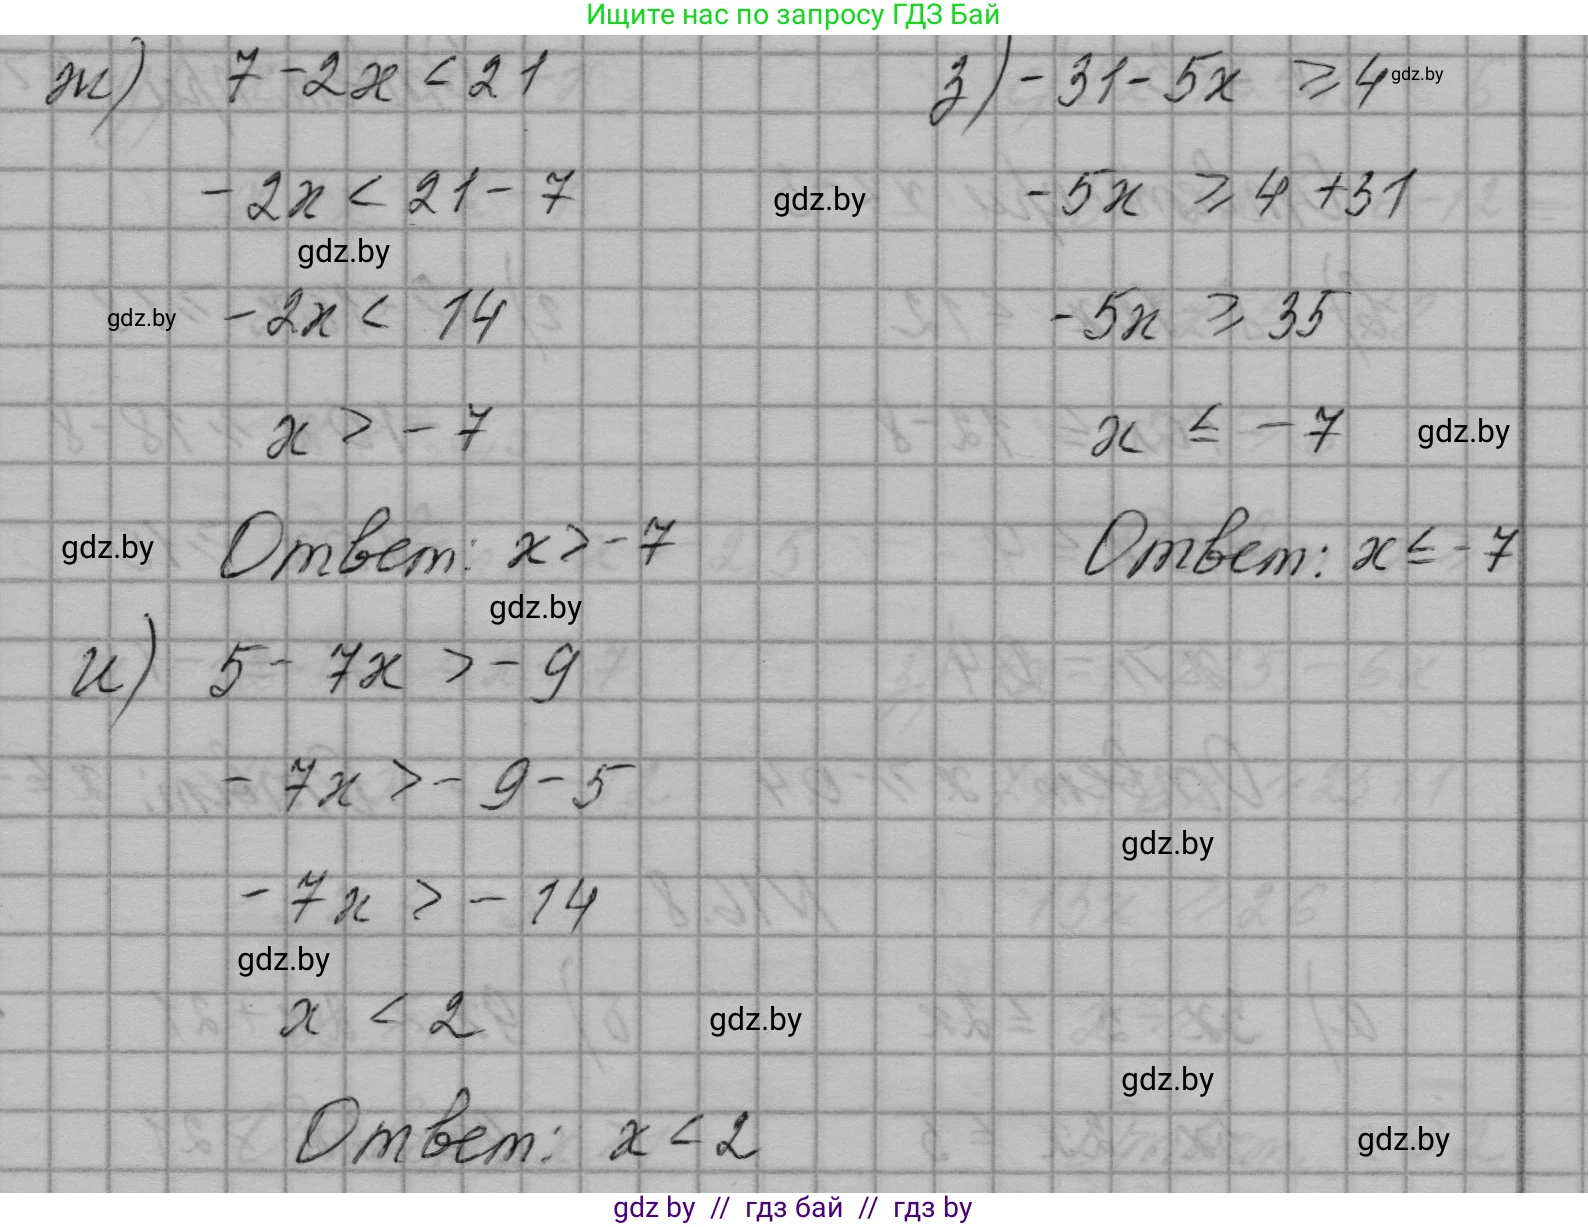 Ищите нас по запросу ГДЗ Бай
ж) 7 - 2x < 21
-2x < 21 - 7
gdz.by
gdz.by
-2x < 14
x > -7
gdz.by
Ответ: x > -7
gdz.by
з) -31 - 5x ≥ 4
gdz.by
gdz.by
-5x ≥ 4 + 31
-5x ≥ 35
x ≤ -7
gdz.by
Ответ: x ≤ -7
и) 5 - 7x > -9
-7x > -9 - 5
gdz.by
-7x > -14
gdz.by
x < 2
gdz.by
gdz.by
Ответ: x < 2
gdz.by
gdz by // гдз бай // гдз by